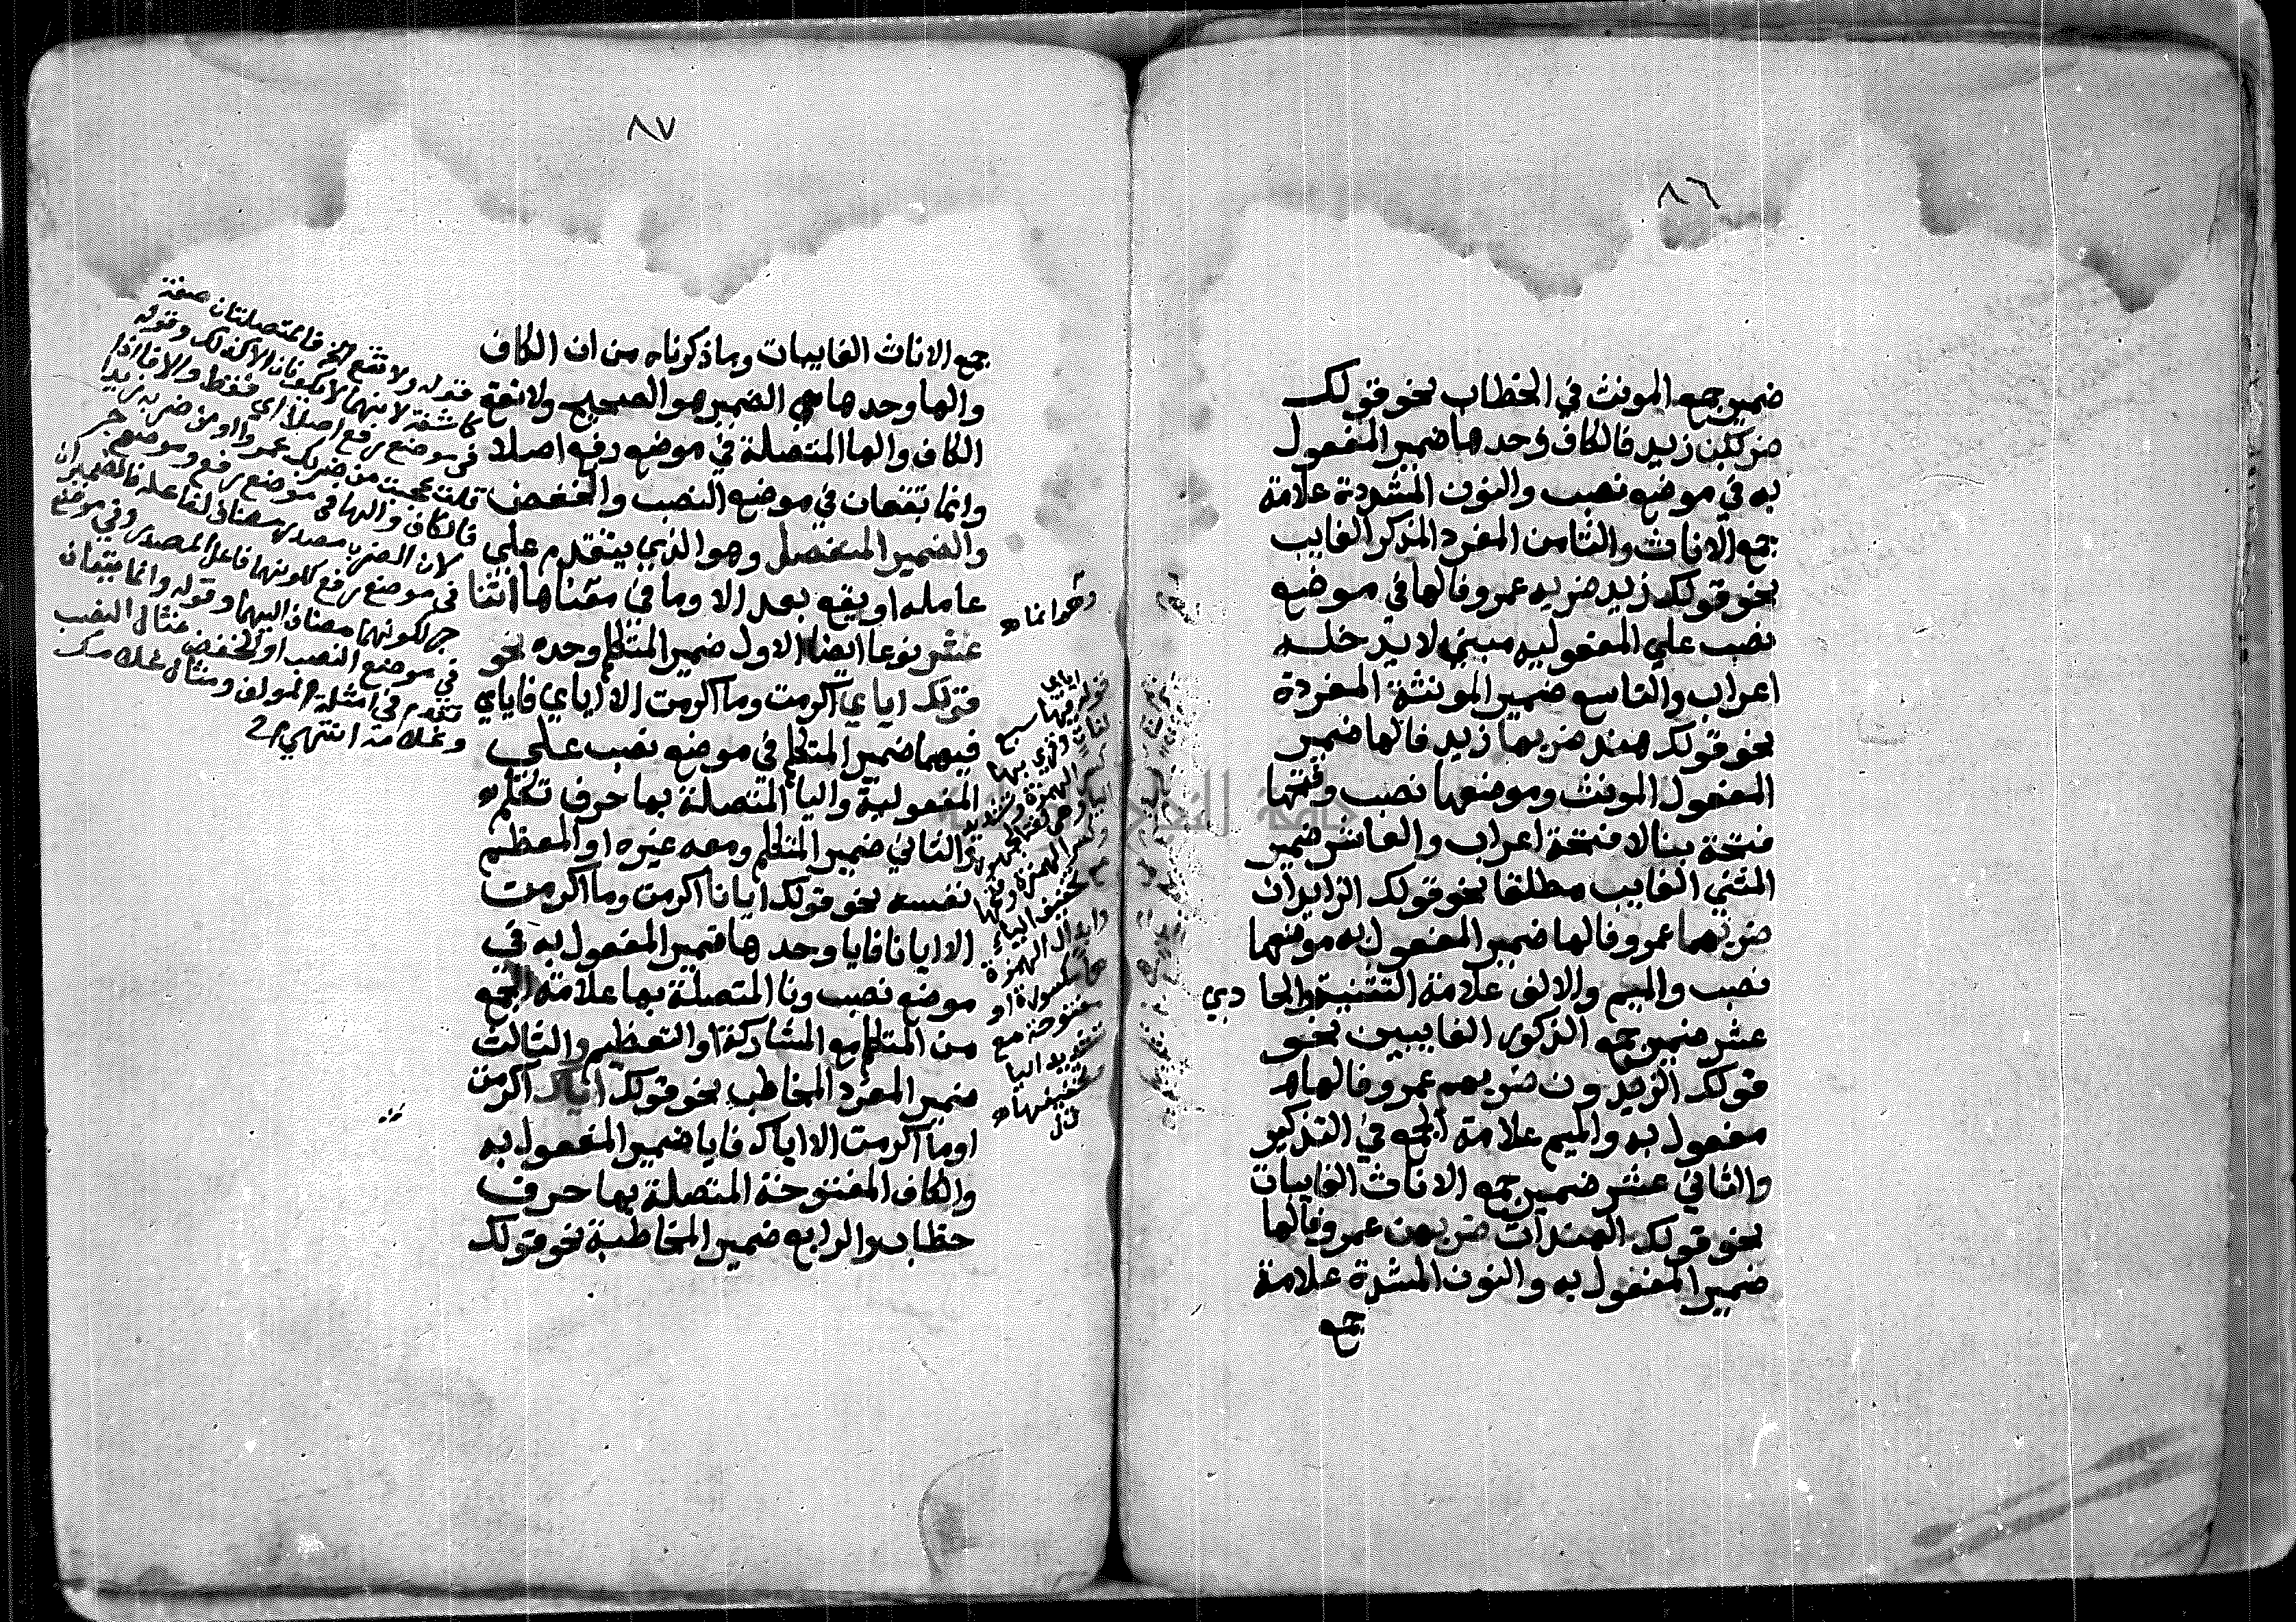 ٨٦
ضمير جمع المونث في الخطاب نحو قولك
ضربكن زيد فالكاف وحدها ضمير المفعول
به في موضع نصب والنون المشددة علامة
جمع الاناث والثامن المفرد المذكر الغايب
نحو قولك زيد ضربه عمرو فالها في موضع
نصب علي المفعوليه مبني لا يدخله
اعراب والتاسع ضمير المونثة المفردة
نحو قولك هند ضربها زيد فالها ضمير
المفعول المونث وموضعها نصب وفتحها
فتحة بنا لا فتحة اعراب والعاشر ضمير
المثني الغايب مطلقا نحو قولك الزايدان
ضربهما عمرو فالها ضمير المفعول به موضعها
نصب والميم والالف علامة التثنية والحادي
عشر ضمير جمع الذكور الغايبين نحو
قولك الزيدون ضربهم عمرو فالها
مفعول به والميم علامة الجمع في التذكير
والثاني عشر ضمير جمع الاناث الغايبات
نحو قولك الهندات ضربهن عمرو فالها
ضمير المفعول به والنون المشدة علامة
جمع
٨٧
جمع الاناث الغايبات وما ذكرناه من ان الكاف
والها وحدها هي الضمير هو الصحيح ولا تقع
الكاف والها المتصلة في موضع رفع اصلا
وانما تقعان في موضع النصب والخفض
والضمير المنفصل وهو الذي يتقدم علي
عامله او يقع بعد الا وما في معناها اثنا
عشر نوعا ايضا الاول ضمير المتكلم وحده نحو
قولك اياي اكرمت وما اكرمت الا اياي فاياي
فيهما ضمير المتكلم في موضع نصب علي
المفعولية واليا المتصلة بها حرف تكلم
والثاني ضمير المتكلم ومعه غيره او المعظم
نفسه نحو قولك ايانا اكرمت وما اكرمت
الا ايانا فايا وحدها ضمير المفعول به في
موضع نصب ونا المتصلة بها علامة الجمع
من المتكلم مع المشاركة او التعظيم والثالث
ضمير المفرد المخاطب نحو قولك اياك اكرمت
او ما اكرمت الا اياك فايا ضمير المفعول به
والكاف المفتوحة المتصلة بها حرف
خطاب والرابع ضمير المخاطبة نحو قولك
قوله ولا تقع الخ فالمتصلتان صفة
كاشفة لانهما لا يكونان الا كذلك وقوله
في موضع رفع اصلا اي فقط والا فاذا
قلت عجبت من ضربك عمروا او من ضربه زيدا
فالكاف والها في موضع رفع وموضع جر
لان الضرب مصدر مضاف لفاعله فالضميران
في موضع رفع لكونهما فاعل المصدر وفي موضع
جر لكونهما مضاف اليهما وقوله وانما يقعان
في موضع النصب او الخفض مثال النصب
تقدم في امثلة المولف ومثال
وغلامه انتهي
قوله اياي
فيها
لغات
الهمزة
الهمزة
تخفيف اليا
وابدال الهمزة
ها مكسورة او
مفتوحة مع
تشديد اليا
وتخفيفها